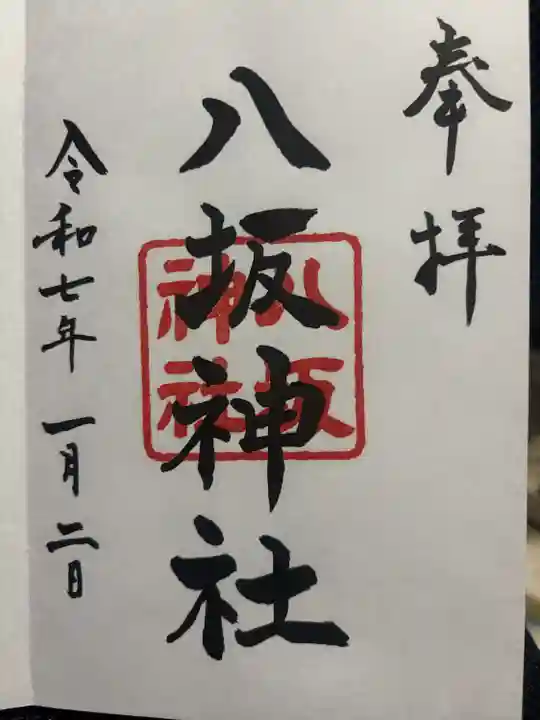 奉拝
八坂神社
八坂
神社
令和七年一月二日